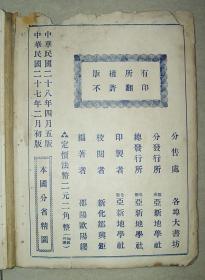 版權所有
不許翻印
分售處 各埠大書坊
分發行所 亞新地學社
總發行所 亞新地學社
印製者 亞新地學社
校閱者 新化鄒興鉅
編著者 邵陽歐陽纓
定價法幣二元二角整
本國分省精圖
中華民國二十八年四月五版
中華民國二十七年二月初版